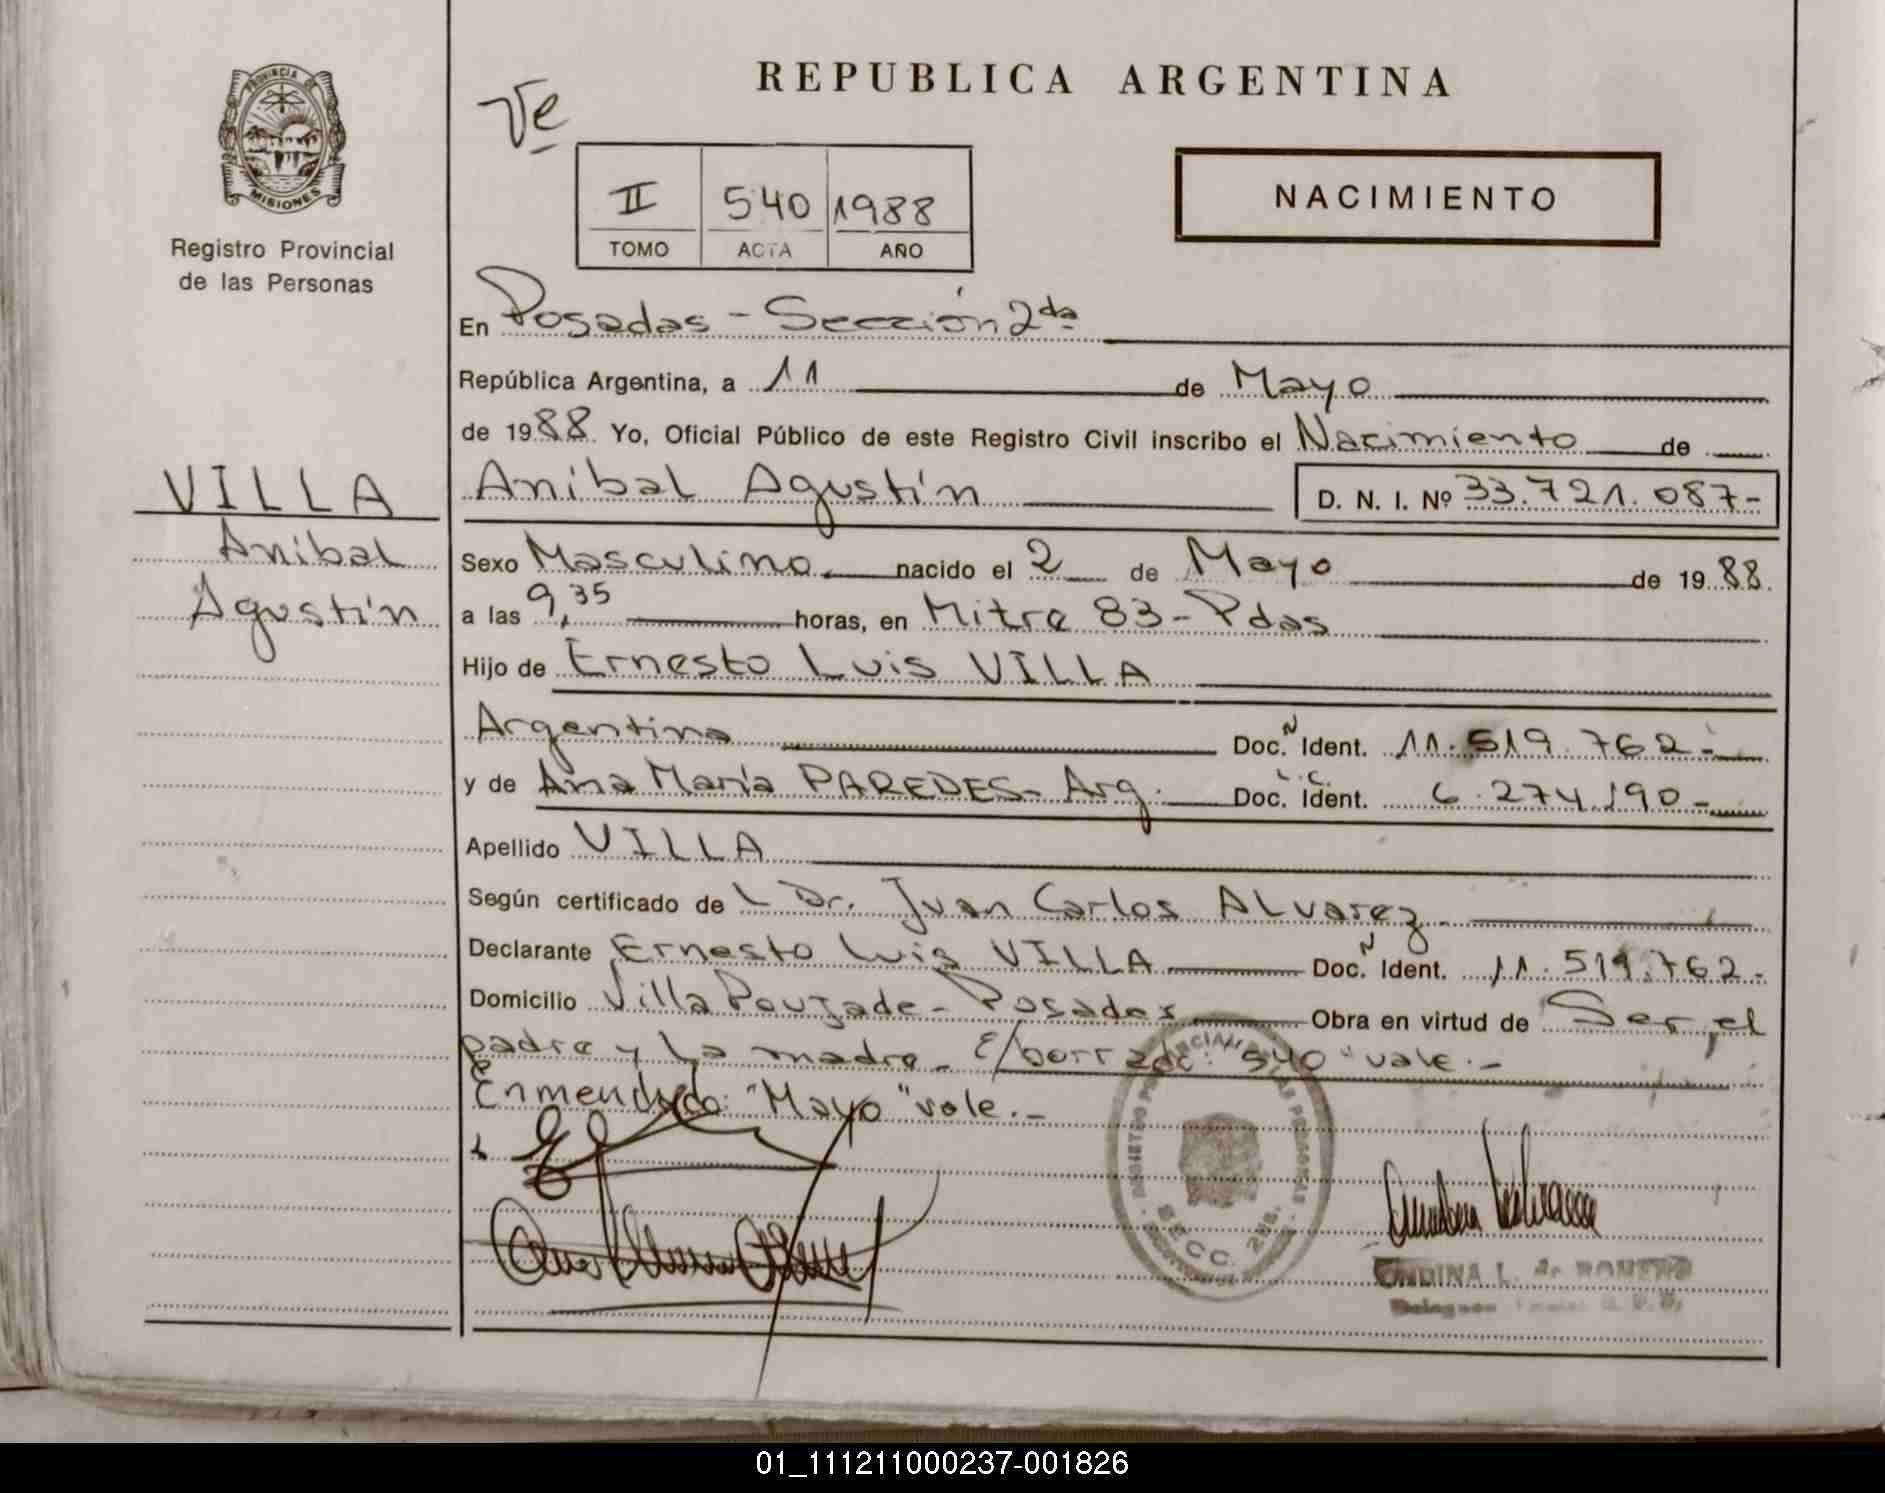 REPUBLICA ARGENTINA
Ve
PROVINCIA DE
MISIONES
Registro Provincial
de las Personas
II 540 1988
TOMO ACTA AÑO
NACIMIENTO
VILLA
Anibal
Agustín
En Posadas - Sección 2da
República Argentina, a 11 de Mayo
de 1988 Yo, Oficial Público de este Registro Civil inscribo el Nacimiento de
Anibal Agustín D. N. I. Nº 33.721.087-
Sexo Masculino nacido el 2 de Mayo de 1988.
a las 9,35 horas, en Mitre 83 - Pdas
Hijo de Ernesto Luis VILLA
Argentino Doc. N Ident. 11.519.762-
y de Ana María PAREDES - Arg. Doc. L.C. Ident. 6.274.190-
Apellido VILLA
Según certificado de L Dr. Juan Carlos ALvarez
Declarante Ernesto Luis VILLA Doc. N Ident. 11.519.762-
Domicilio Villa Poujade - Posadas Obra en virtud de Ser el
padre y la madre - E/borrado: "540" vale.-
Enmendado: "Mayo" vale.-
SECC. 2DA.
ONDINA L. de ROMERO
01_111211000237-001826